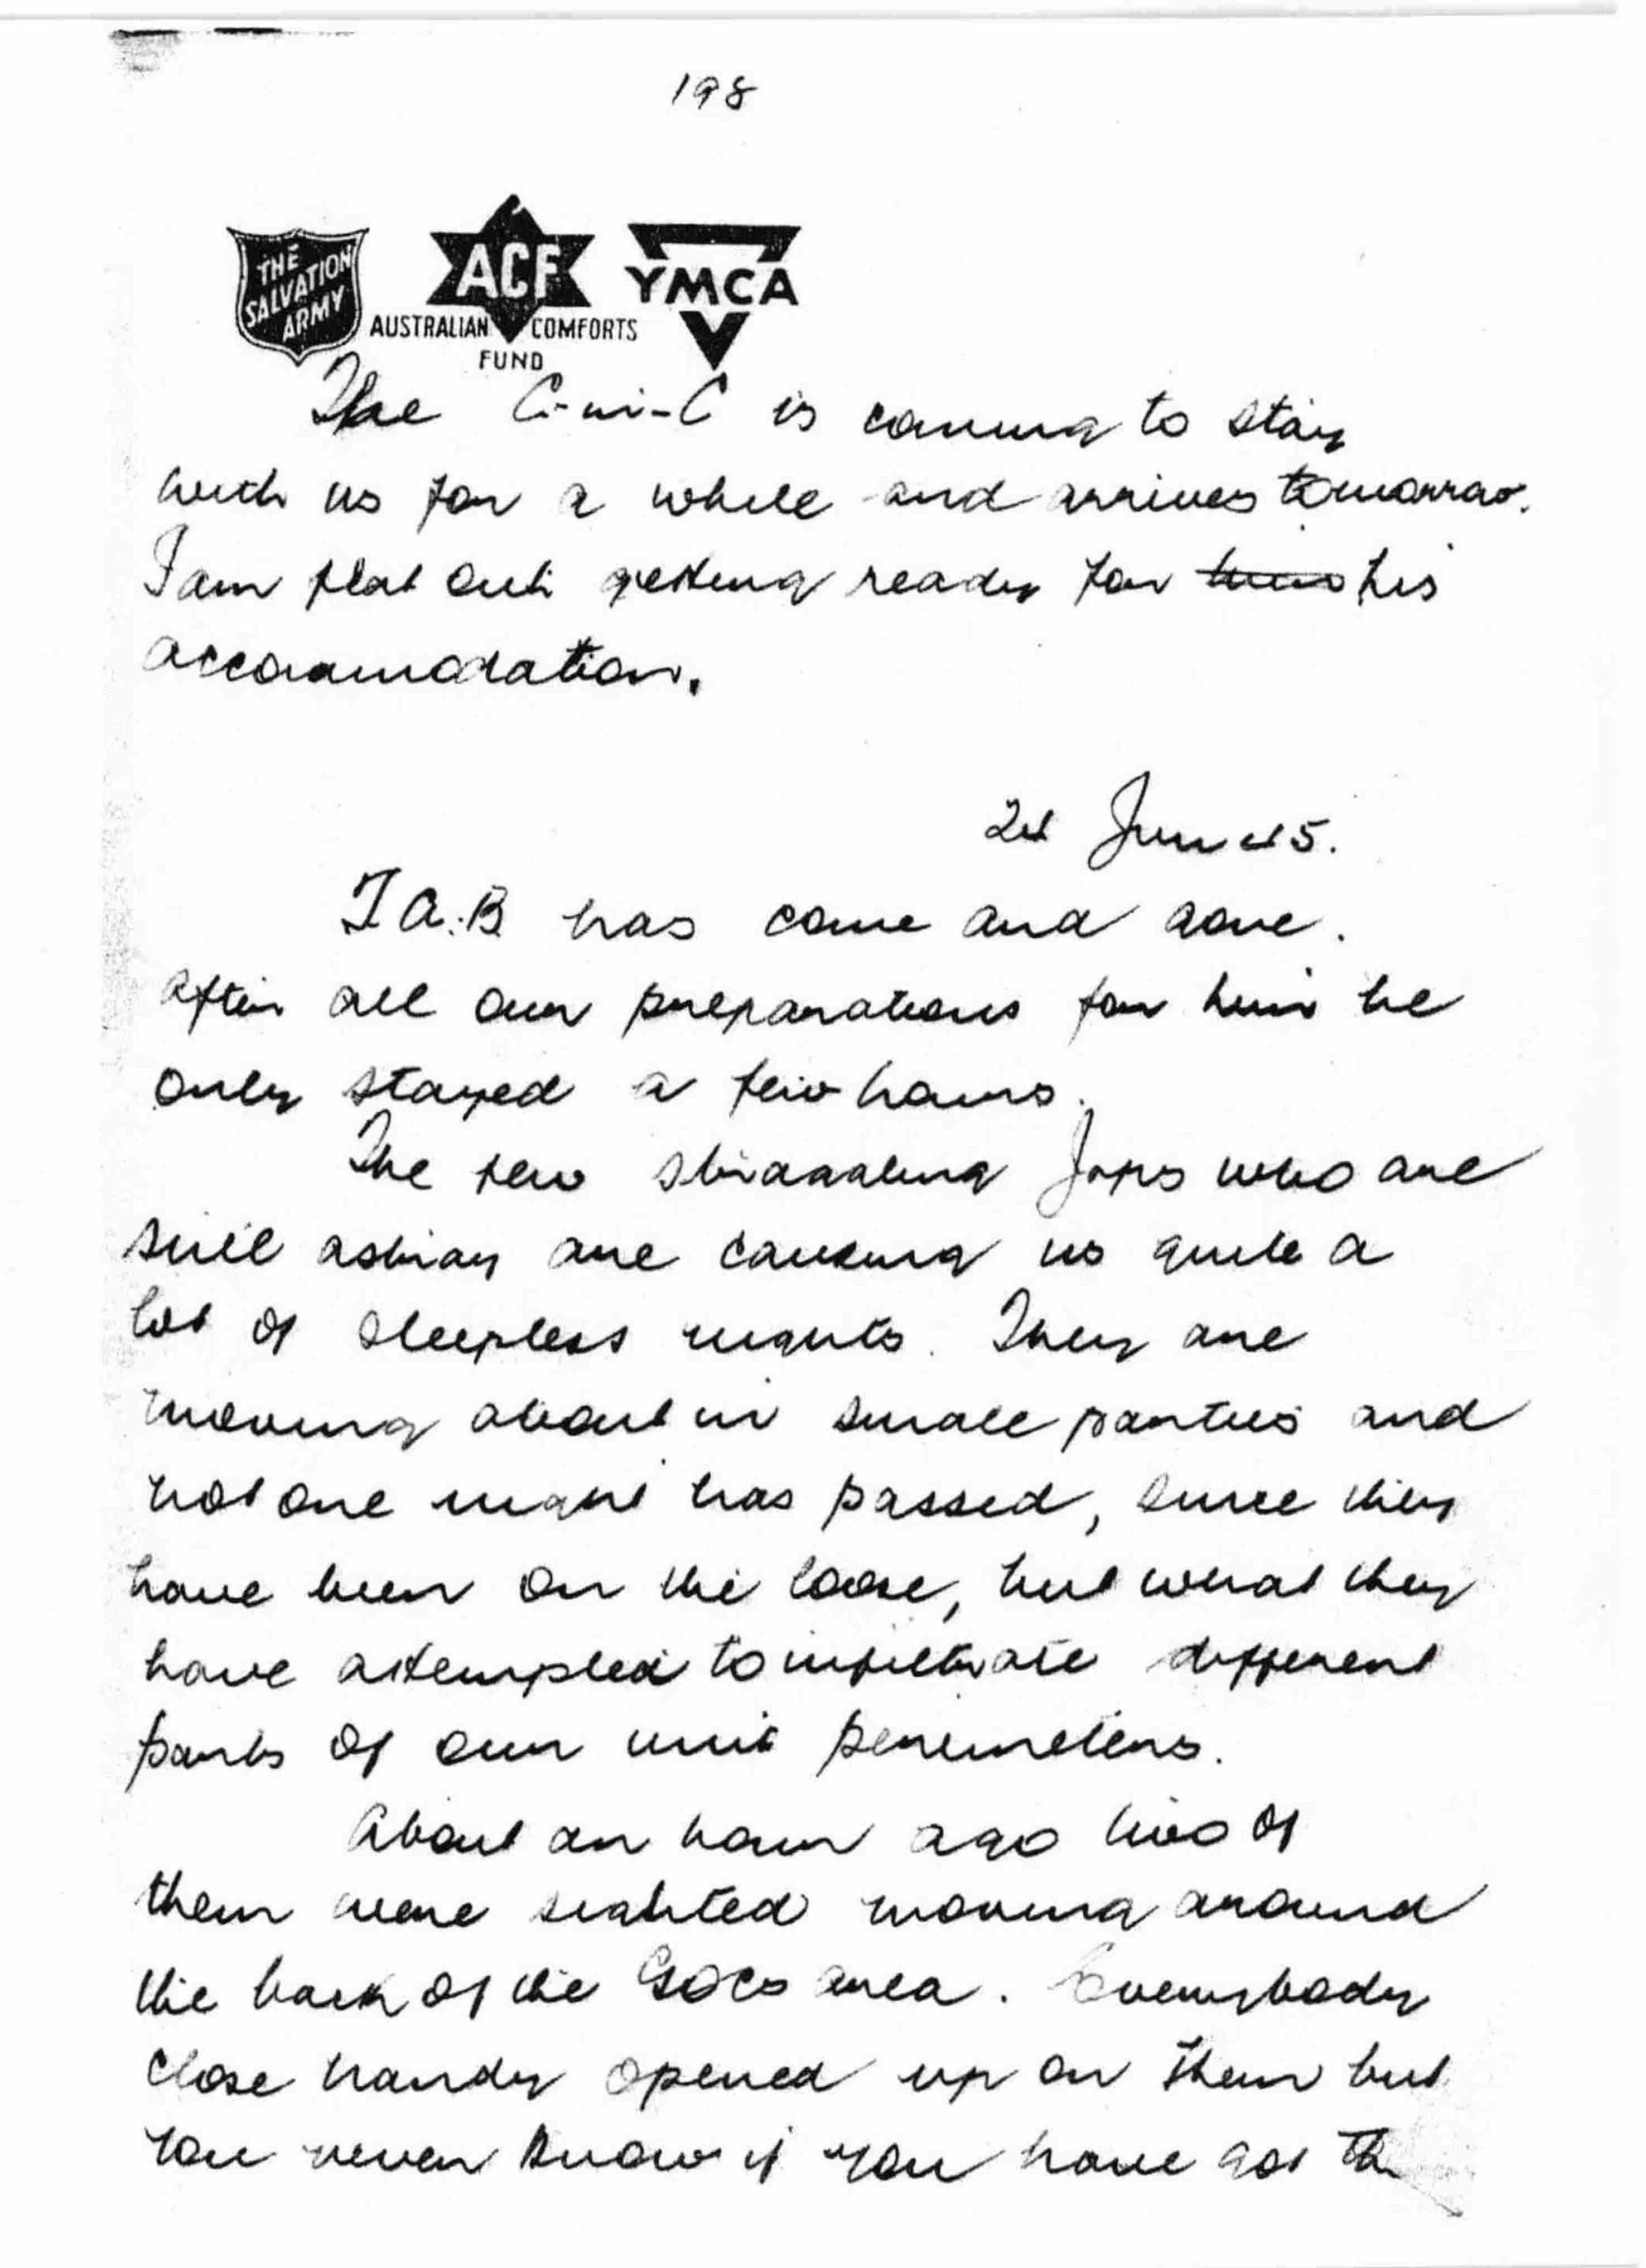 198
THE SALVATION ARMY
ACF
AUSTRALIAN COMFORTS FUND
YMCA
The C-in-C is coming to stay
with us for a while and arrives tomorrow.
I am flat out getting ready for him his
accommodation.
24 Jun 45.
T.A.B. has come and gone.
After all our preparations for him he
only stayed a few hours.
The few straggling Japs who are
still astray are causing us quite a
lot of sleepless nights. They are
moving about in small parties and
not one night has passed, since they
have been on the loose, but what they
have attempted to infiltrate different
parts of our unit perimeters.
About an hour ago two of
them were sighted moving around
the back of the GOCs area. Everybody
close handy opened up on them but
you never know if you have got th